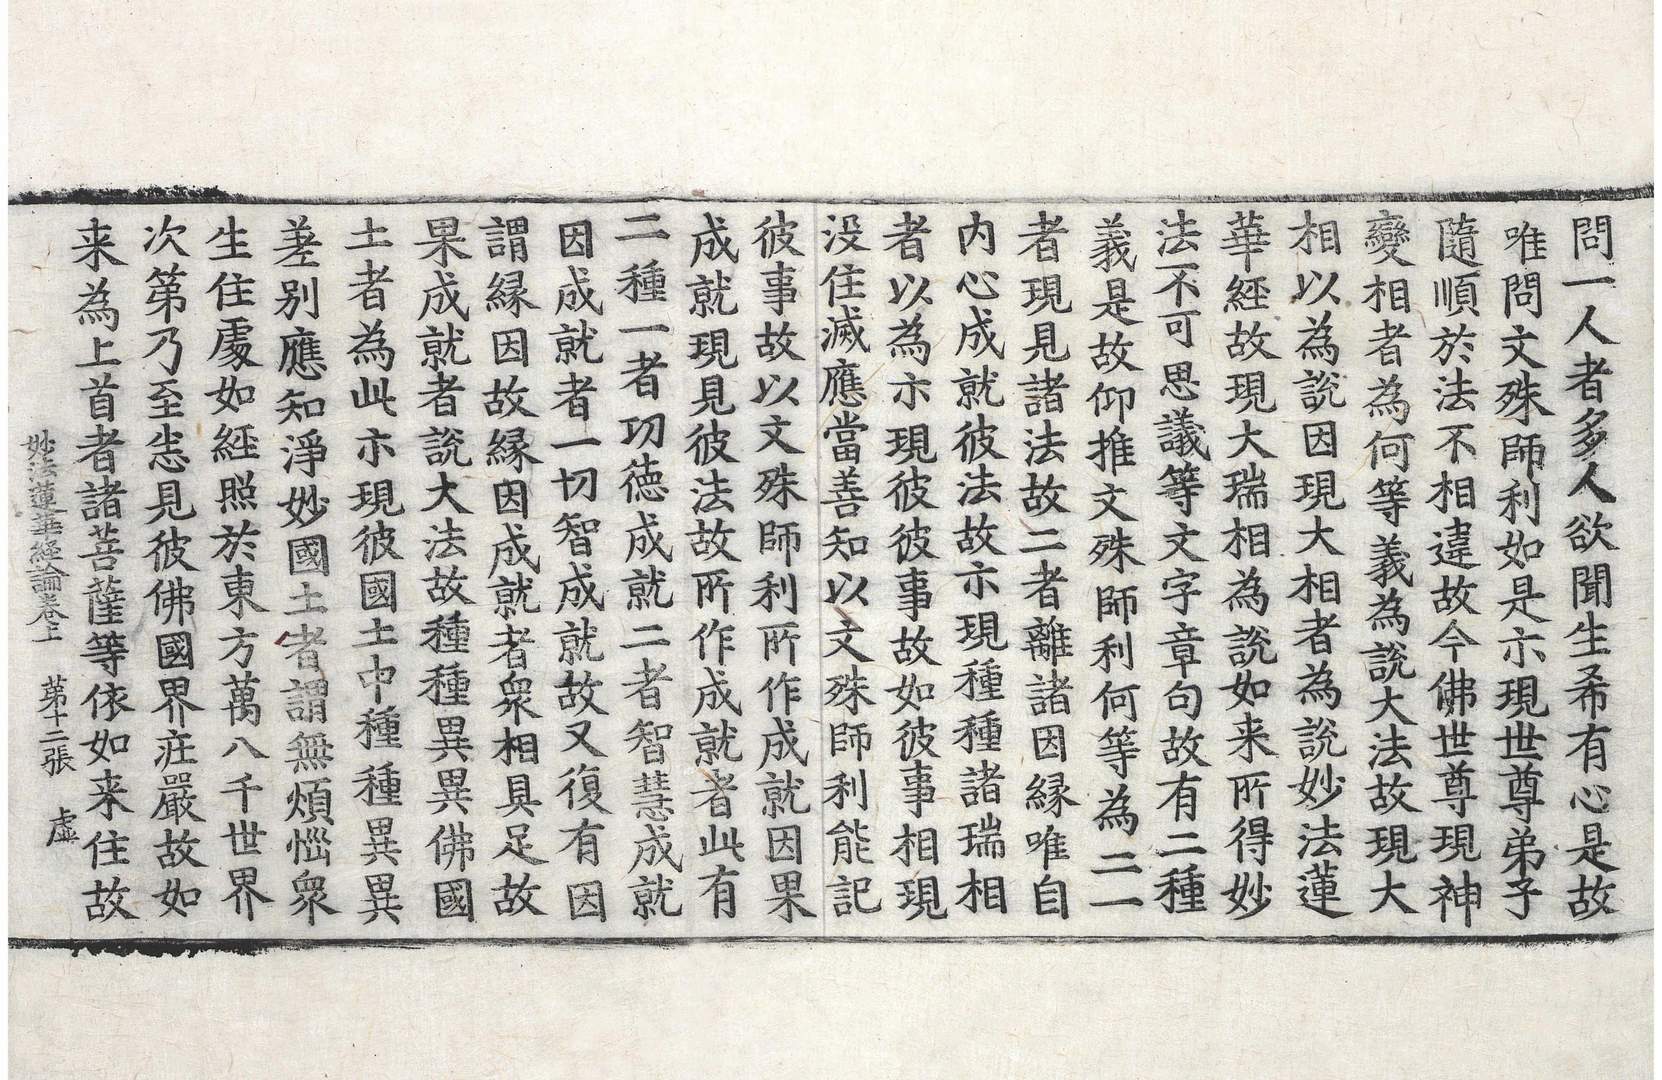 問一人者多人欲聞生希有心是故
唯問文殊師利如是示現世尊弟子
隨順於法不相違故今佛世尊現神
變相者為何等義為說大法故現大
相以為說因現大相者為說妙法蓮
華經故現大瑞相為說如来所得妙
法不可思議等文字章句故有二種
義是故仰推文殊師利何等為二一
者現見諸法故二者離諸因緣唯自
内心成就彼法故示現種種諸瑞相
者以為示現彼彼事故如彼事相現
没住滅應當善知以文殊師利能記
彼事故以文殊師利所作成就因果
成就現見彼法故所作成就者此有
二種一者功德成就二者智慧成就
因成就者一切智成就故又復有因
謂緣因故緣因成就者衆相具足故
果成就者說大法故種種異異佛國
土者為此示現彼國土中種種異異
差别應知淨妙國土者謂無煩惱衆
生住處如經照於東方萬八千世界
次第乃至悉見彼佛國界莊嚴故如
来為上首者諸菩薩等依如来住故
妙法蓮華經論卷上 第十二張 虛